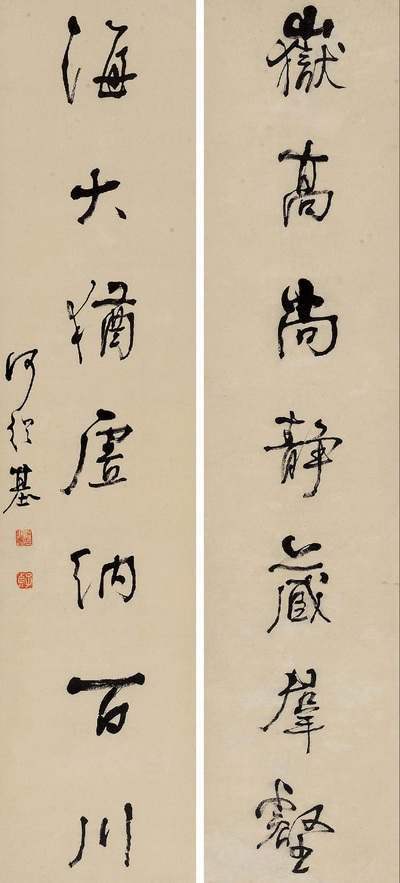 嶽高尚静藏羣壑
海大猶虛納百川
何紹基